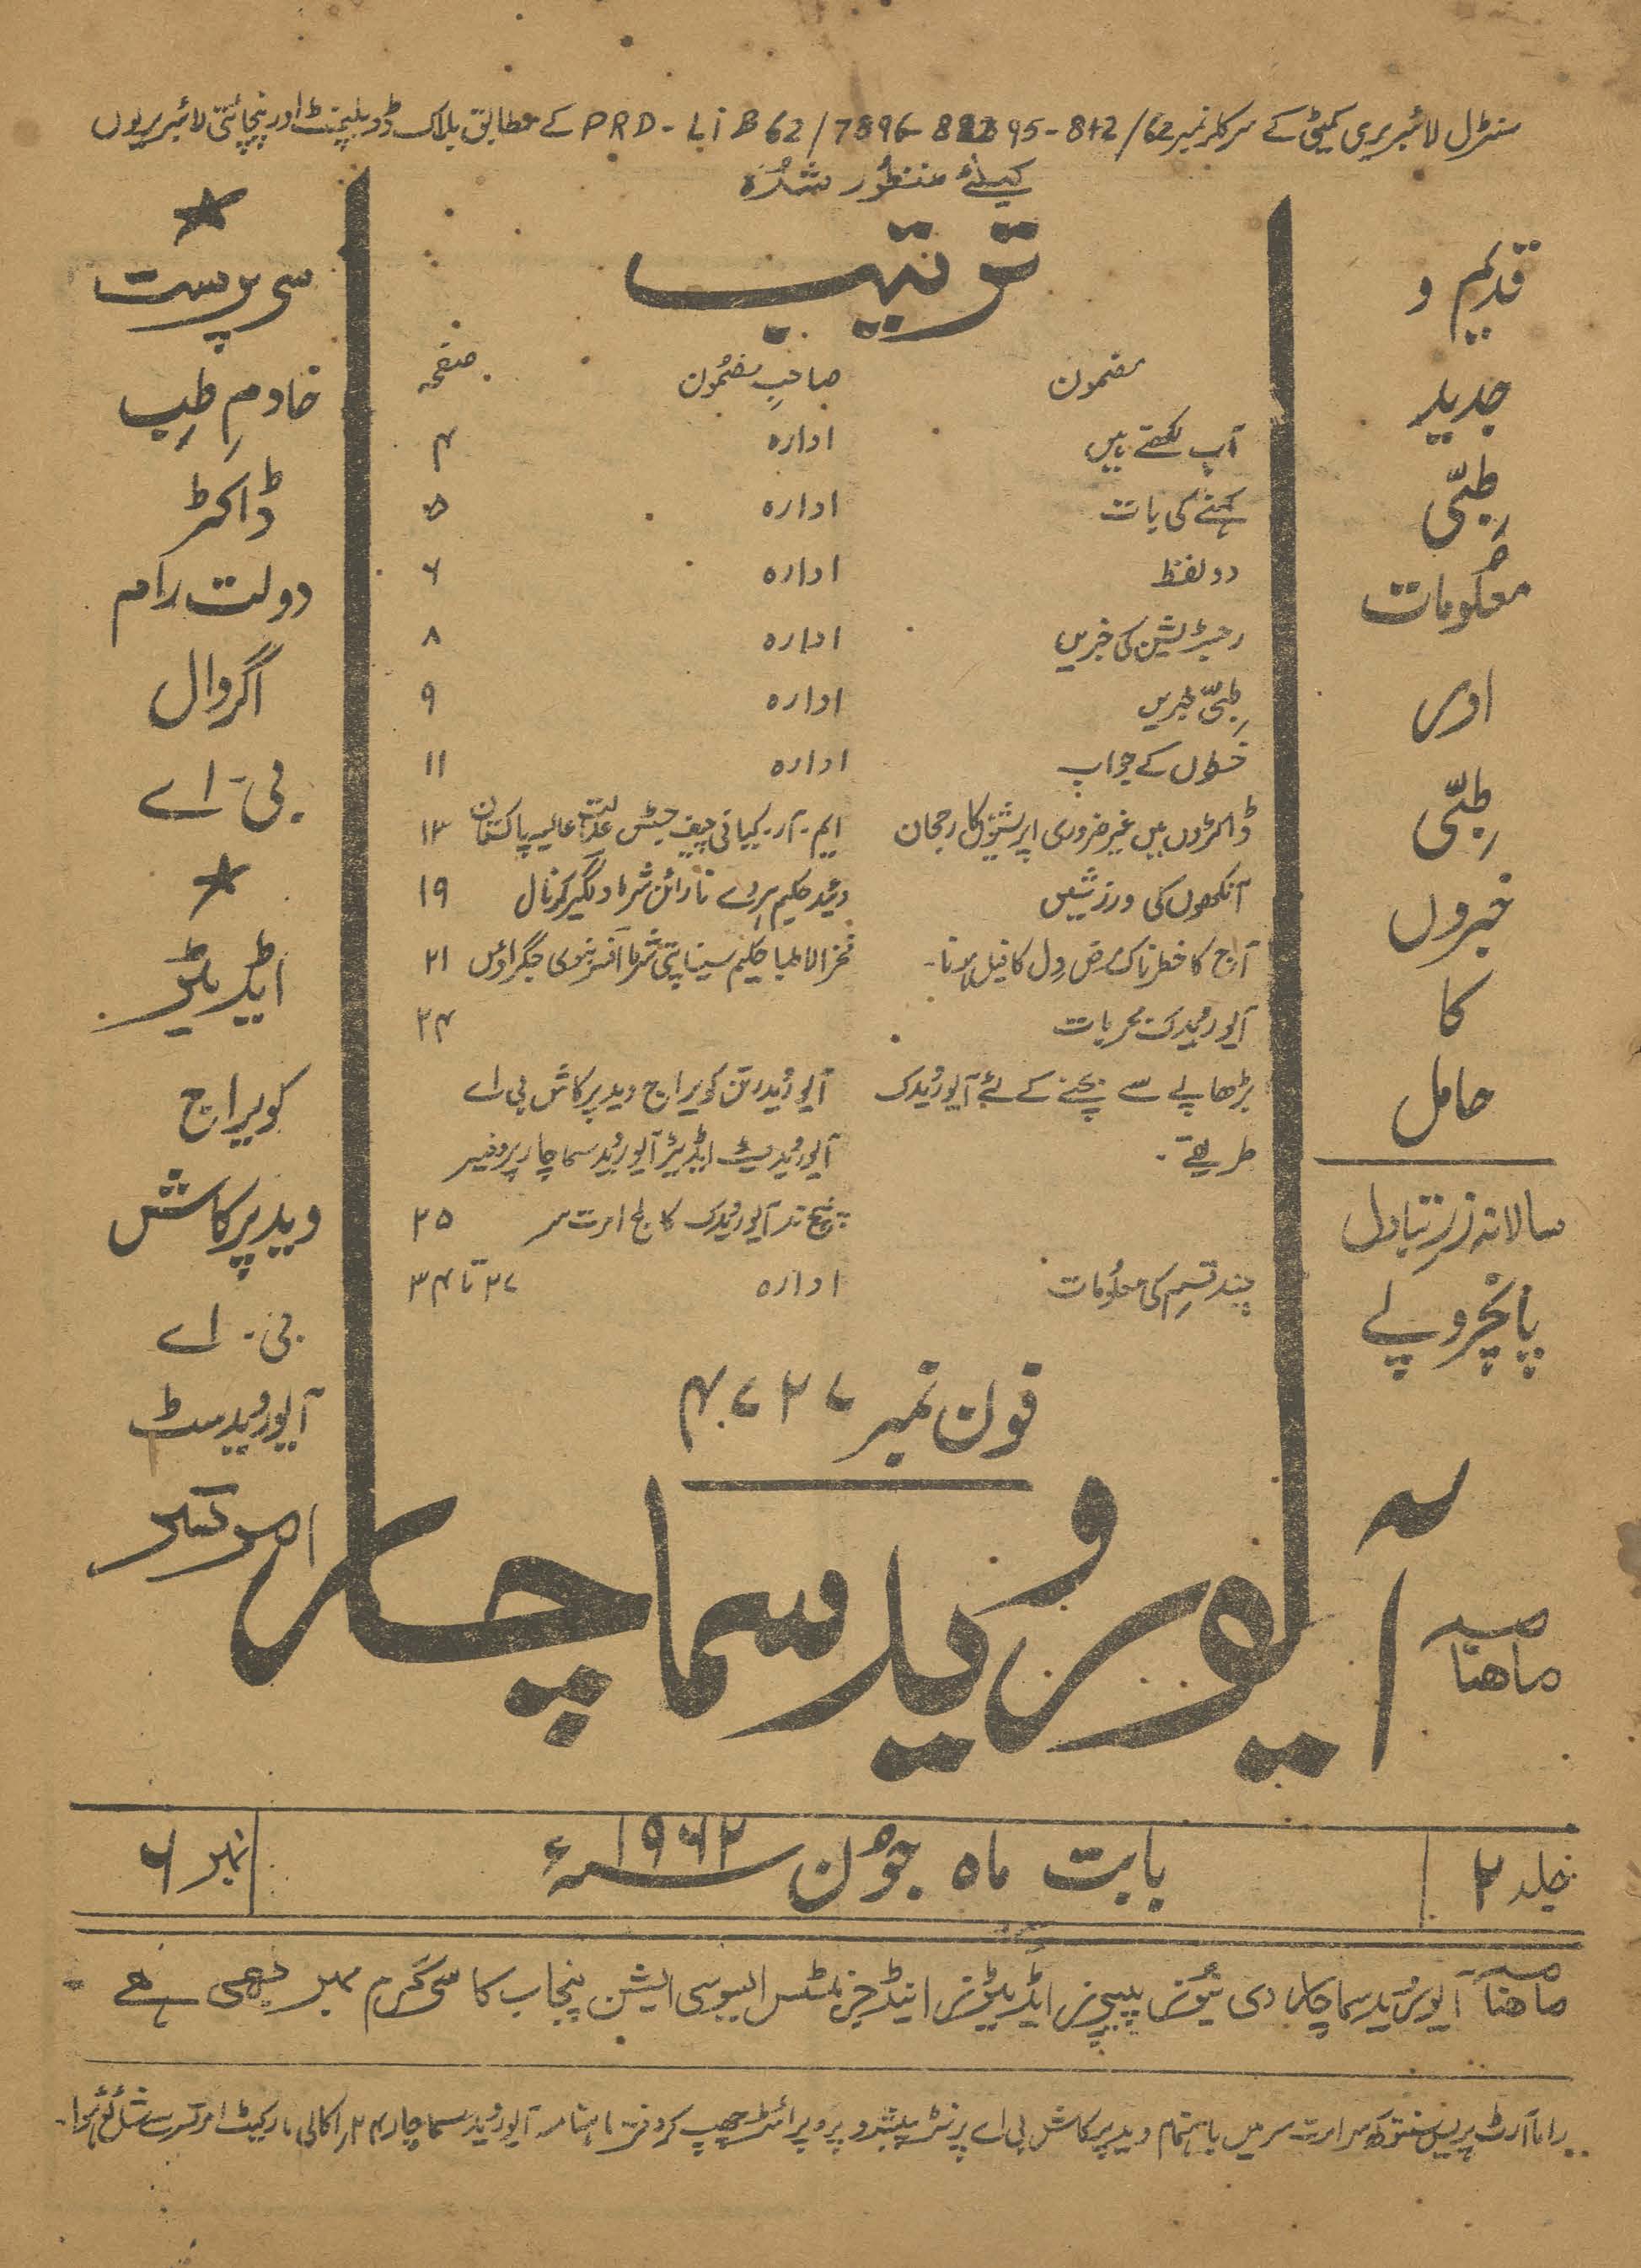 سنٹرل لائبریری کمیٹی کے سرکلر نمبر 62/842-95 PRD-LiB62/7896-8 کے مطابق بلاک ڈویلپمنٹ اور پنچائتی لائبریریوں
کیلئے منظور شدہ
قدیم و
جدید
طِبّی
معلُومات
اور
طِبّی
خبروں
کا
حامل
سالانہ زرِ تبادل
پانچروپے
ترتیب
مضمون صاحبِ مضمُون صفحہ
آپ لکھتے ہیں ادارہ ۴
کہنے کی بات ادارہ ۵
دو لفظ ادارہ ۶
رجسٹریشن کی خبریں ادارہ ۸
طِبّی خبریں ادارہ ۹
خطوں کے جواب ادارہ ۱۱
ڈاکٹروں میں غیر ضروری اپریشنوں کا رجحان ایم۔آر۔کیانی چیف جسٹس عدالت عالیہ پاکستان ۱۳
آنکھوں کی ورزشیں وئید حکیم ہردے نارائن شرما دلگیر کرنال ۱۹
آج کا خطرناک مرض دل کا فیل ہونا۔ فخر الاطبا حکیم سیناپتی شرما آفسر نوی جگراؤں ۲۱
آیوروئیدک مجربات ۲۴
بڑھاپے سے بچنے کے لئے آیوروئیدک آیوروئیدرتن کویراج ویدپرکاش بی اے
طریقے۔ آیوروئیدسٹ ایڈیٹر آیوروئید سماچار پروفیسر
آیوروئیدک کالج امرت سر ۲۵
چند قسم کی معلُومات ادارہ ۲۷ تا ۳۴
فون نمبر ۴۷۲۷
سرپرست
خادمِ طِب
ڈاکٹر
دولت رام
اگروال
بی۔اے
ایڈیٹر
کویراج
ویدپرکاش
بی۔اے
آیوروئیدسٹ
امرتسر
ماھنامہ آیوروید سماچار
جلد ۲ بابت ماہ جوُن ۱۹۶۲ء نمبر ۶
ماھنامہ آیوروئید سماچار دی نیُوز پیپرز ایڈیٹرز اینڈ جرنلسٹس ایسوسی ایشن پنجاب کا سرگرم ممبر بھی ہے۔
راما آرٹ پریس سنتوکھسر امرت سر میں باہتمام ویدپرکاش بی اے پرنٹر پبلشر و پروپرائٹر چھپ کر دفتر ماہنامہ آیوروئید سماچار اکالی مارکیٹ امرتسر سے شائع ہُوا۔